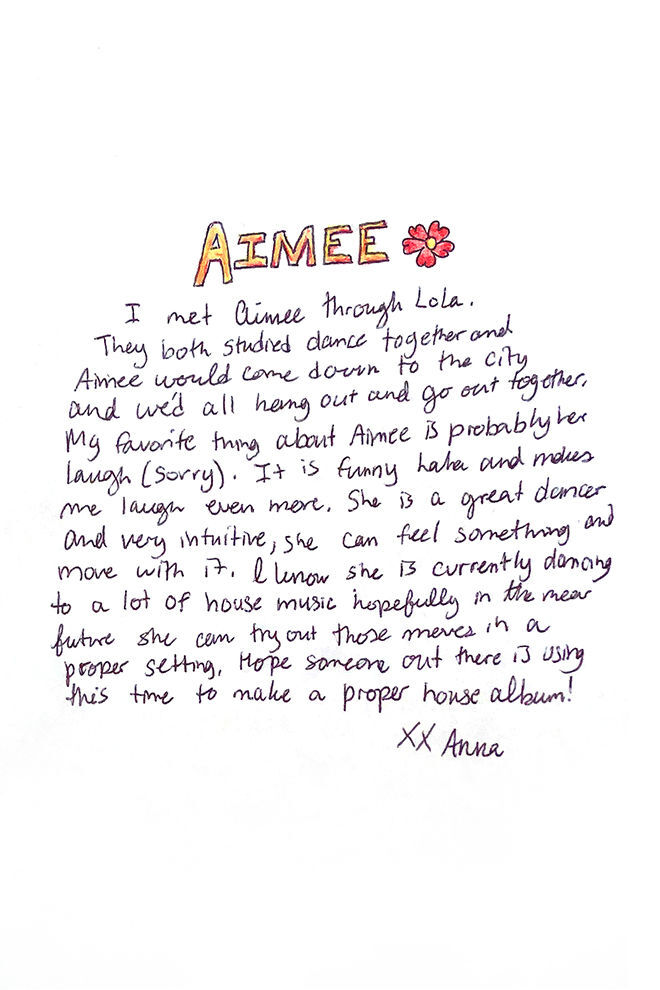 AIMEE
I met Aimee through Lola.
They both studied dance together and
Aimee would come down to the city
and we'd all hang out and go out together.
My favorite thing about Aimee is probably her
laugh (sorry). It is funny haha and makes
me laugh even more. She is a great dancer
and very intuitive, she can feel something and
move with it. I know she is currently dancing
to a lot of house music hopefully in the near
future she can try out those moves in a
proper setting. Hope someone out there is using
this time to make a proper house album!
XX Anna